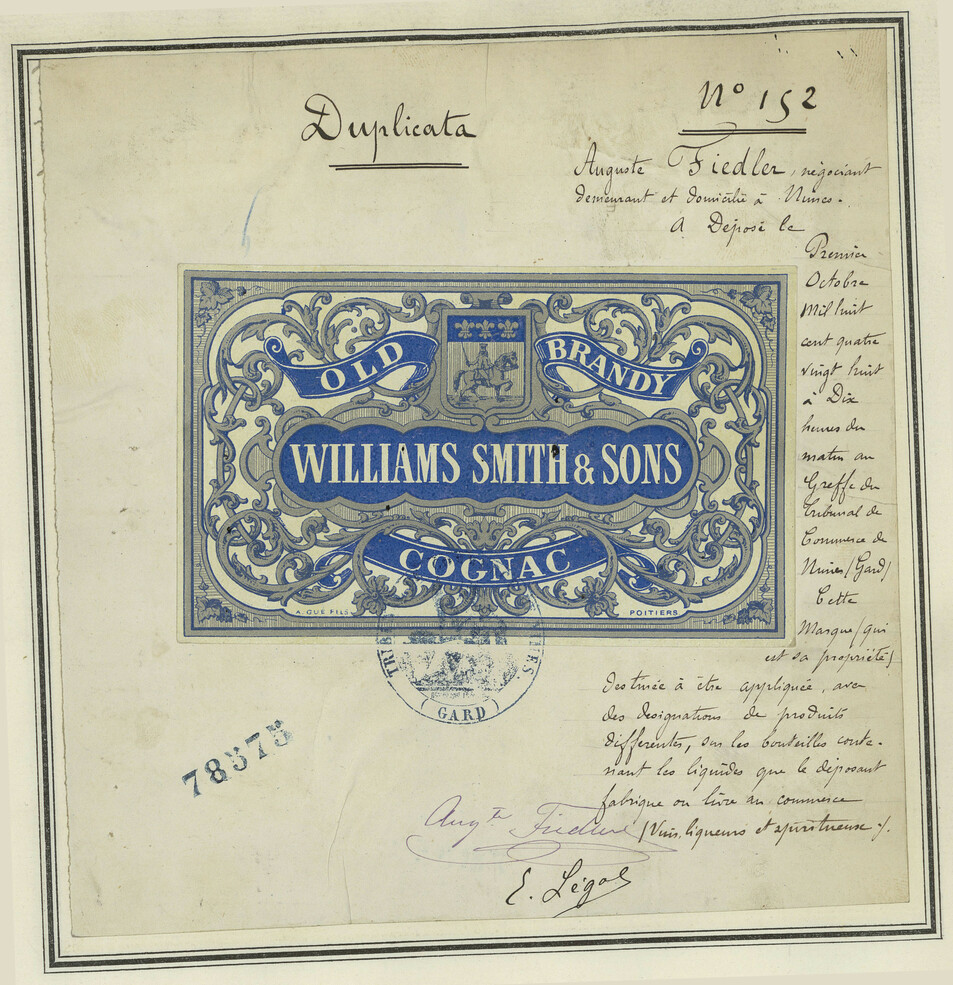 Duplicata
N° 152
Auguste Fiedler, négociant
demeurant et domicilié à Nimes.
A Déposé le
Premier
Octobre
Mil huit
cent quatre
vingt huit
à Dix
heures du
matin au
Greffe du
Tribunal de
Commerce de
Nimes (Gard)
Cette
Marque (qui
est sa propriété)
destinée à être appliquée, avec
des designations de produits
differentes, sur les bouteilles conte-
nant les liquides que le déposant
fabrique ou livre au commerce
(Vins, liqueurs et spiritueux).
OLD BRANDY
WILLIAMS SMITH & SONS
COGNAC
A. GUE FILS POITIERS
(GARD)
78575
Augte Fiedler
E. Légal